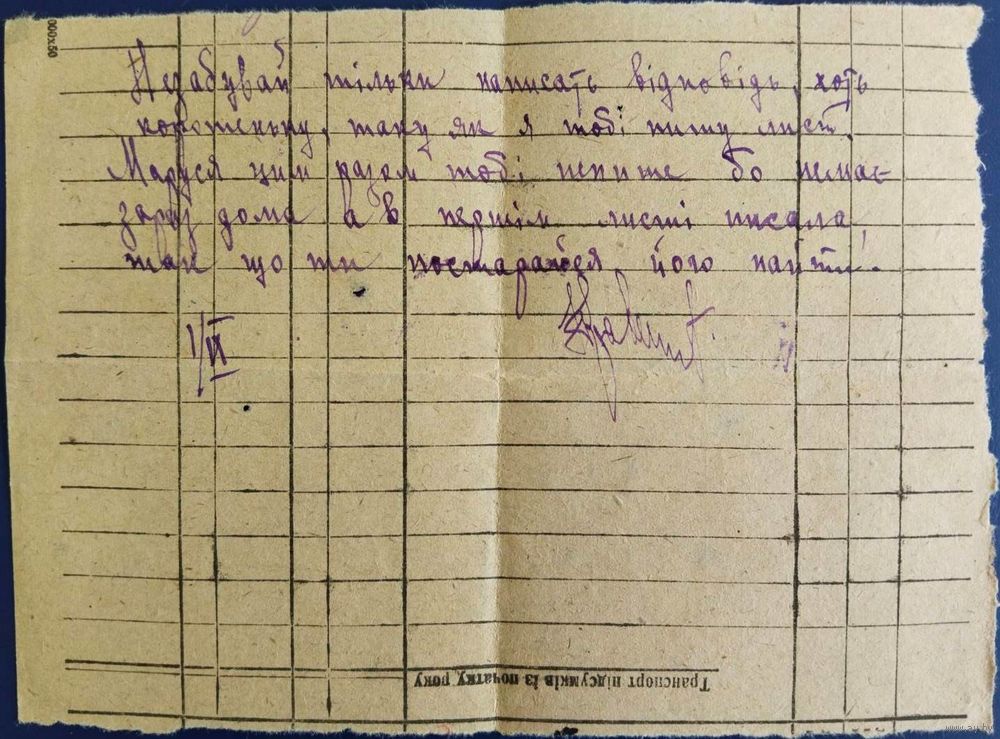 000х50
Незабувай тільки написать відповідь, хоть
коротеньку, таку як я тобі пишу лист.
Маруся цим разом тобі непише бо немає
зараз дома а в першім листі писала,
так що ти постарайся його найти.
1/II
Транспорт підсумків із початку року
www.ay.by